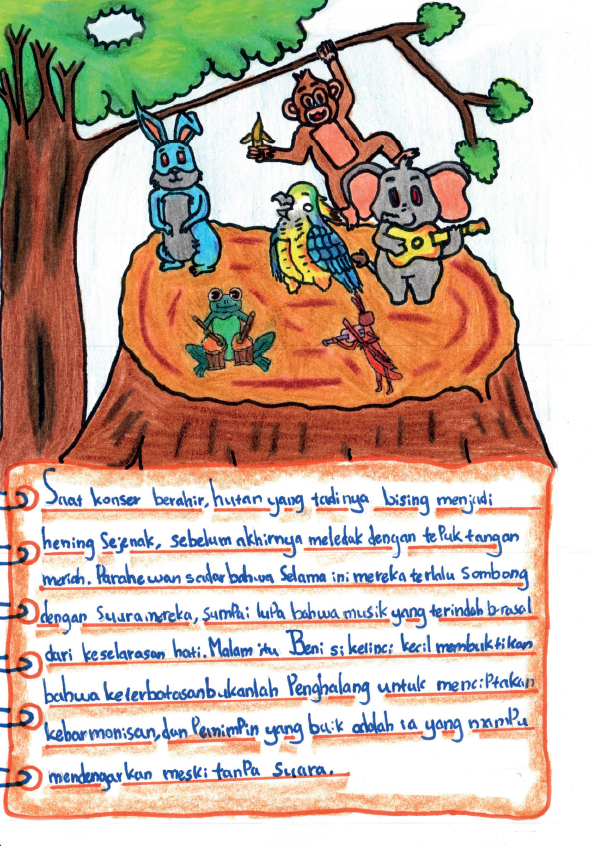 Saat konser berahir, hutan yang tadinya bising menjadi
hening Sejenak, sebelum akhirnya meledak dengan tepuk tangan
meriah. Para hewan sadar bahwa selama ini mereka terlalu sombong
dengan suara mereka, sampai lupa bahwa musik yang terindah brasal
dari keselarasan hati. Malam itu Beni si kelinci kecil membuktikan
bahwa keterbatasan bukanlah Penghalang untuk menciptakan
keharmonisan, dan Pemimpin yang baik adalah ia yang mampu
mendengarkan meski tanpa suara.